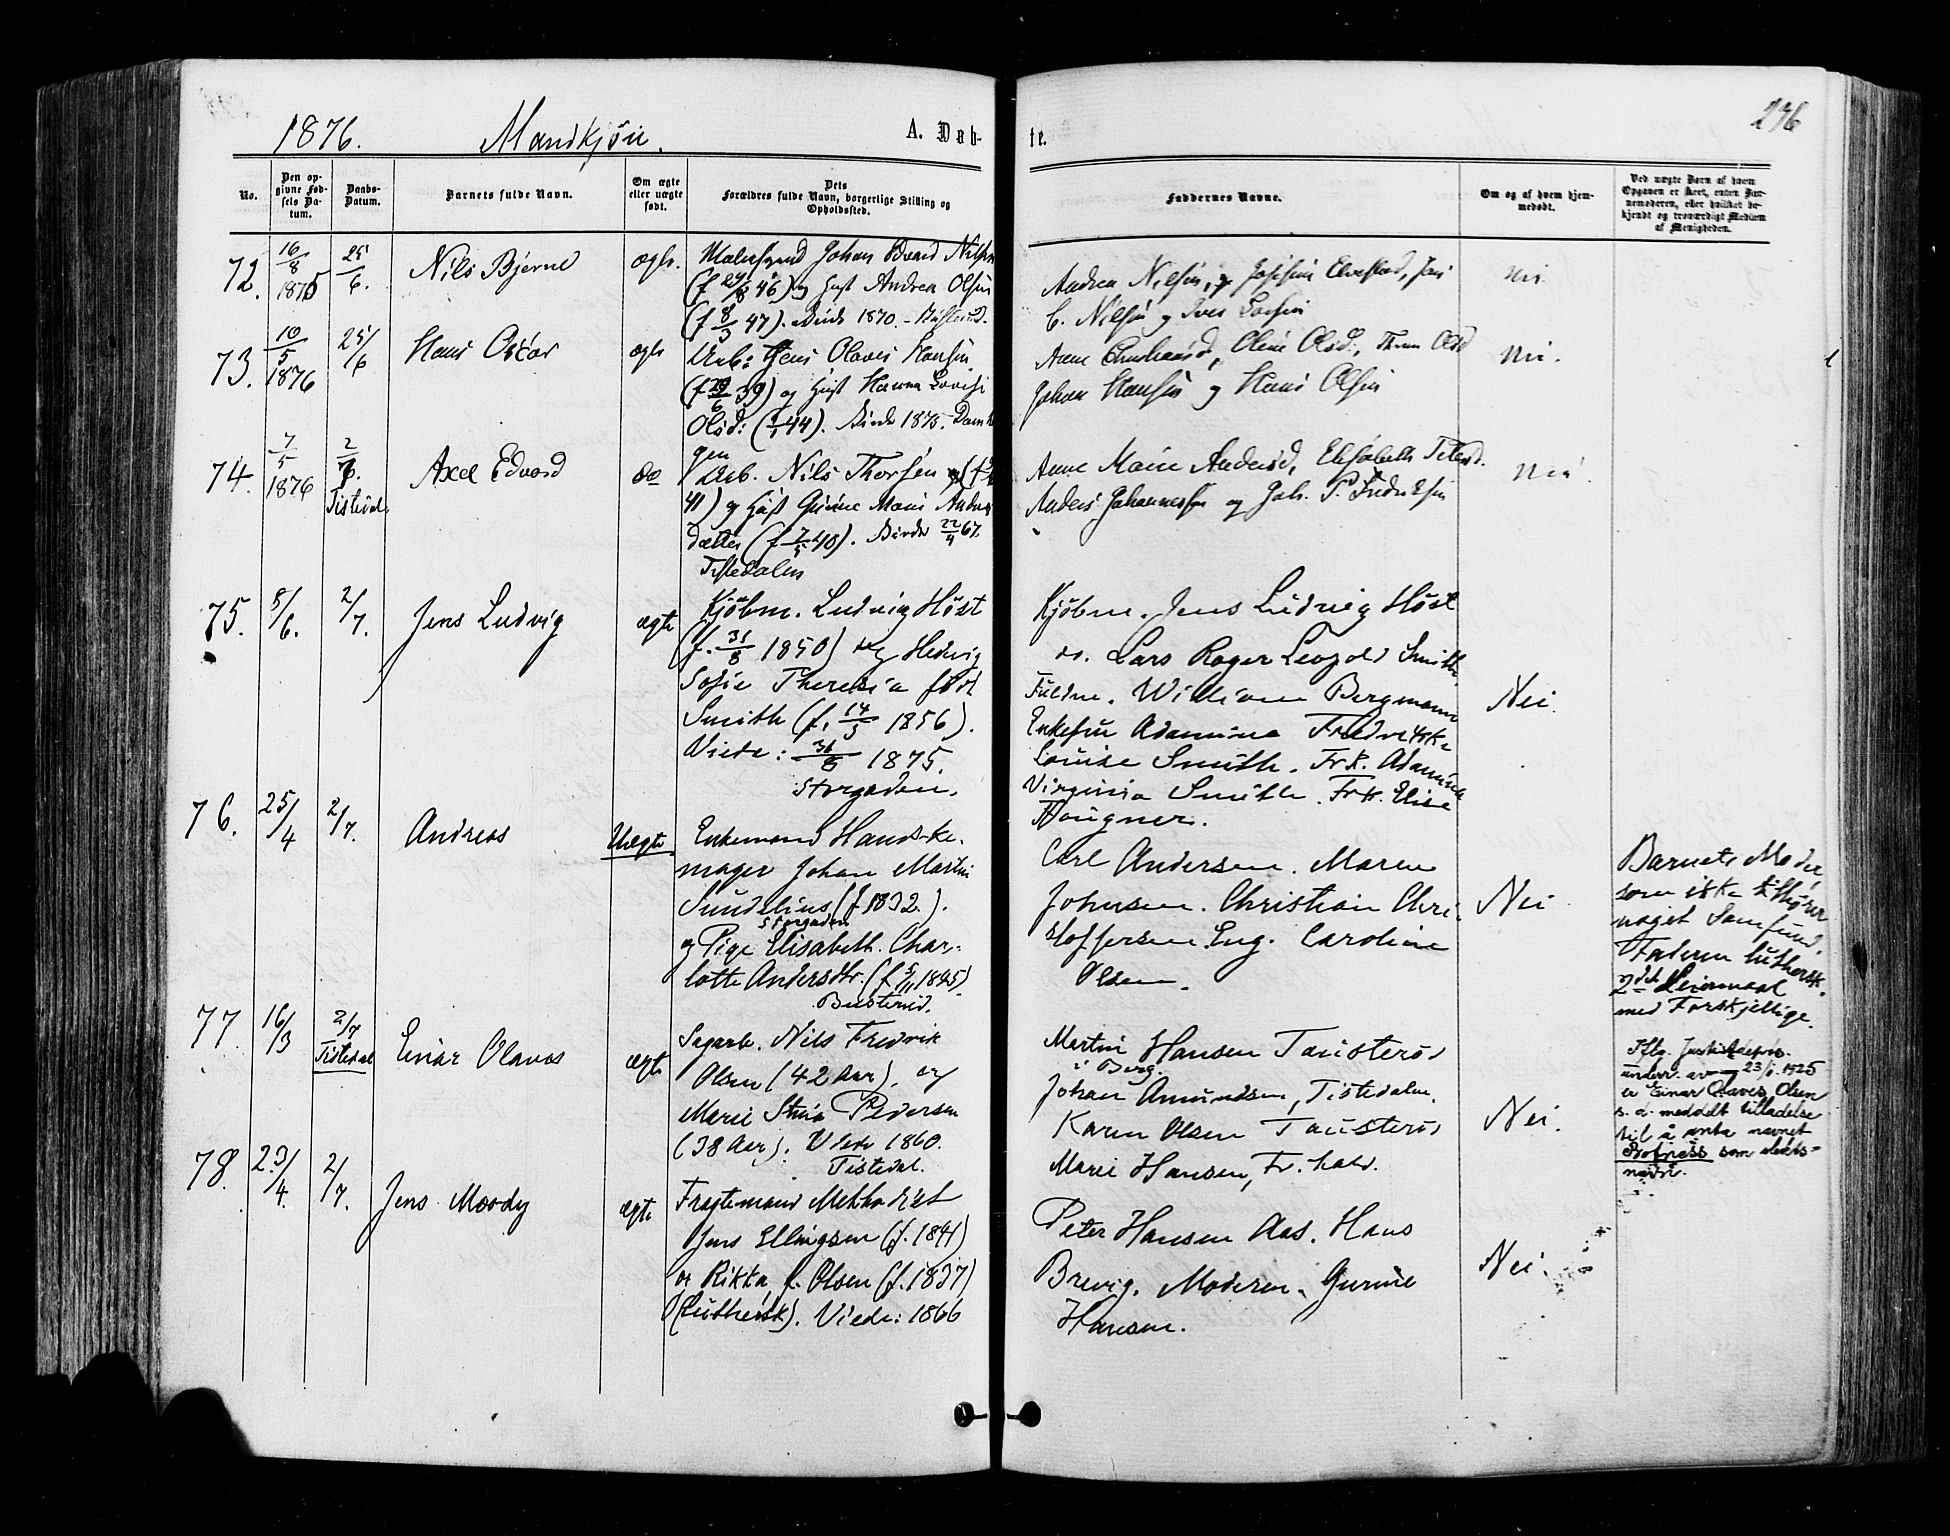 1876. Mandkjön. A. Døb-
te. 246
No.
Den op-
givne Fød-
sels Da-
tum.
Daabs-
Datum.
Barnets fulde Navn.
Om ægte
eller uægte
født.
Dets
Forældres fulde Navn, borgerlige Stilling og
Opholdssted.
Faddernes Navne.
Om og af hvem hjem-
medøbt.
Ved uægte Børn af hvem
Opgaven er skeet, enten Bar-
nemoderen, eller hvilket be-
kjendt og troværdigt Medlem
af Menigheden.
72. 16/8 1875 25/6. Nils Bjerne ægte.
Johan Edvard Nilsen
(f 24/8 46) og Hust Andrea Olsen
(f 8/3 47). Viede 1870.
Andrea Nilsen,
C. Nilsen og Iver
Nei
73. 10/5 1876 25/6 Hans Oscar ægte
Arb: Jens Olaves Hansen
(f 29/6 39) og Hust Hanna Lovise
Olsd: 44). Viede 1875.
Oline Olsd:,
Johan Hansen og Hans Olsen
Nei.
74. 7/5 1876 2/7. Tistedal. Axel Edvard do
Arb. Nils Thorsen (f
41) og Hust Gunne Marie Anders
datter (f 7/5 40). Viede 22/4 67.
Tistedalen
Anne Marie Andersd, Elisabeth
Anders Johannessen og Joh. P. Fredriksen
Nei
75. 8/6. 2/7. Jens Ludvig ægte
Kjöbm. Ludvig Høst
(f. 31/8 1850) og Hedvig
Sofie Theresia født
Smith (f. 14/3 1856).
Viede: 31/8 1875.
Storgaden.
Kjöbm. Jens Ludvig Høst
do. Lars Roger Leopold Smith
Fuldm. William Bergmann
Enkefru Adamine Fredrikke
Louise Smith. Frk. Adamine
Virginia Smith. Frk. Elise
Hougner.
Nei.
76. 25/4 2/7. Andreas Uægte
Enkemand Handske-
mager Johan Martin
Sundelius (f 1832).
Storgaden
og Pige Elisabeth Char-
lotte Andersdtr. (f 5/11 1845).
Busterud.
Carl Andersen. Maren
Johnsen. Christian Chri-
stoffersen. Ung. Caroline
Olsen.
Nei
Barnets Moder
som ikke tilhører
noget Samfund.
Faderen luthersk.
2det Leiermaal
med Forskjellige.
77. 16/3 2/7 Tistedal Einar Olavos ægte
Sagarb. Nils Fredrik
Olsen (42 Aar), og
Marie Stina Pedersen
(38 Aar). Viede 1860.
Tistedal.
Martin Hansen Tausterød
i Berg.
Johan Amundsen, Tistedalen.
Karen Olsen Tausterød
Marie Hansen, Fr. hald.
Nei.
Iflg. Justisdeps.
underr. av 23/1 1925
er Einar Olaves Olsen
s. d. meddelt tilladelse
til å anta navnet
som slekts-
navn.
78. 23/4. 2/7. Jens Moody ægte
Fragtemand Methodist
Jens Ellingsen (f. 1841)
og Rikka, f. Olsen (f. 1837)
(Luthersk). Viede: 1866
Peter Hansen Aas. Hans
Brevig. Moderen. Gunne
Hansen.
Nei.